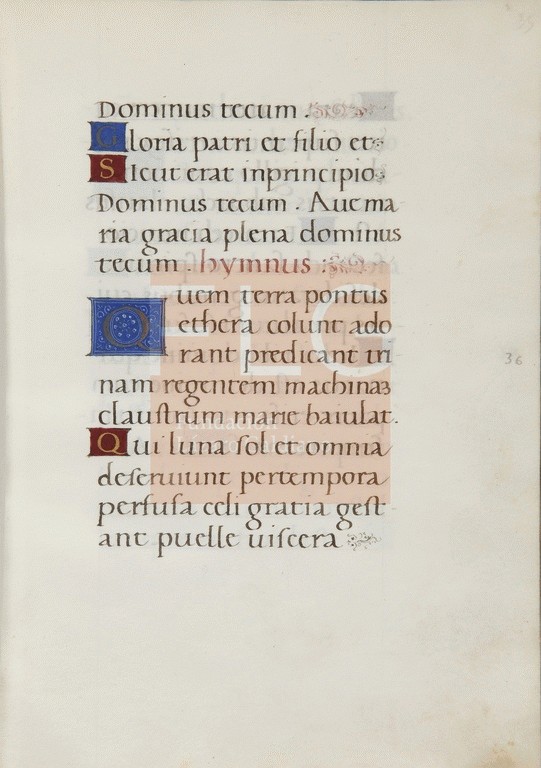 Dominus tecum.
Gloria patri et filio et
Sicut erat inprincipio
Dominus tecum. Aue ma
ria gracia plena dominus
tecum. hymnus
Quem terra pontus
ethera colunt ado
rant predicant tri
nam regentem machinaʒ
clauſtrum marie baiulat.
Qui luna ſol et omnia
deſeruiunt per tempora
perfuſa celi gratia geſt
ant puelle uiſcera
36
FLG
Fundación